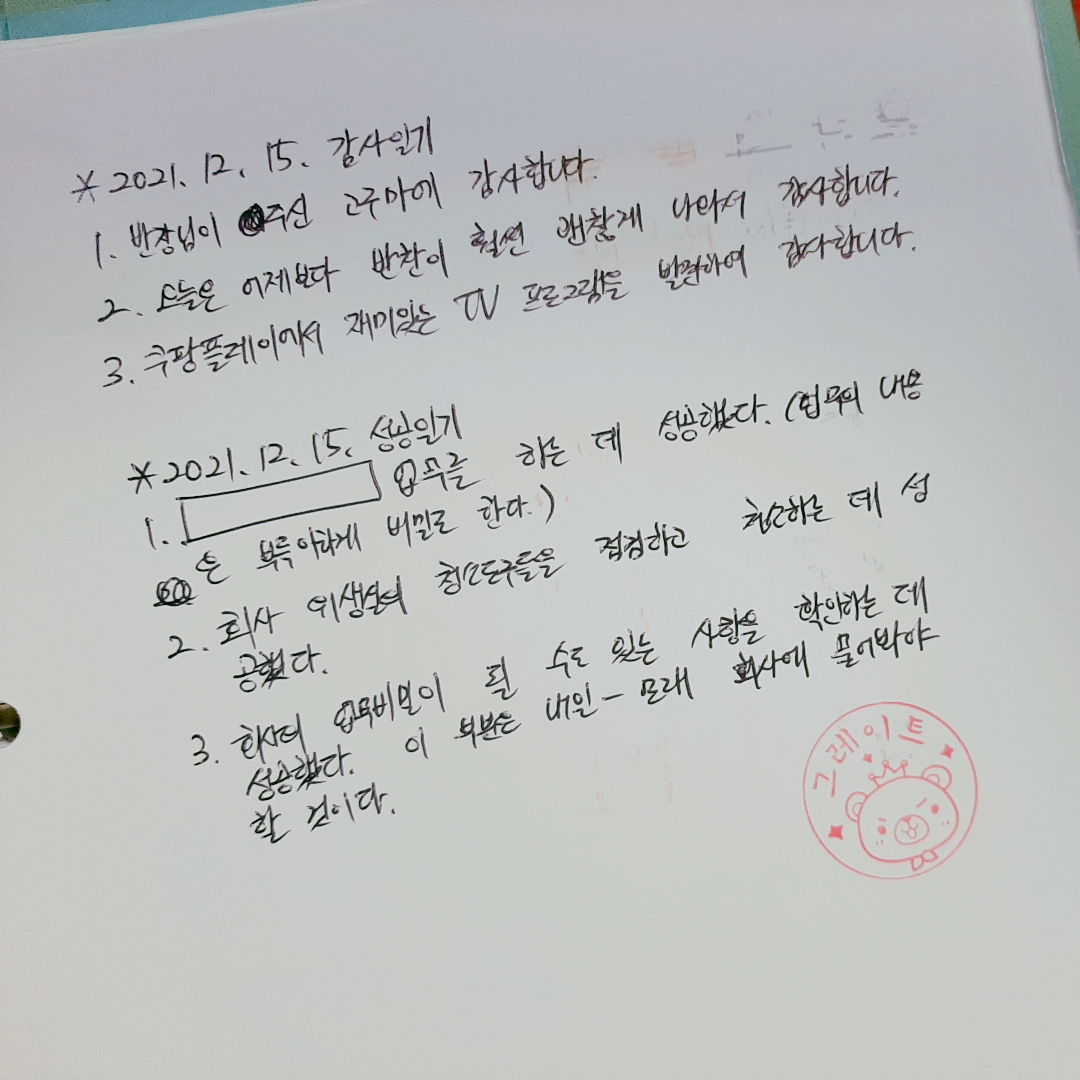 * 2021. 12. 15. 감사일기
1. 반장님이 주신 고구마에 감사합니다.
2. 오늘은 어제보다 반찬이 훨씬 괜찮게 나와서 감사합니다.
3. 쿠팡플레이에서 재미있는 TV 프로그램을 발견하여 감사합니다.
* 2021. 12. 15. 성공일기
1. 업무를 하는 데 성공했다. (업무의 내용
은 부득이하게 비밀로 한다.)
2. 회사 위생실의 청소도구들을 점검하고 청소하는 데 성
공했다.
3. 회사의 업무비밀이 될 수도 있는 사항을 확인하는 데
성공했다. 이 부분은 내일-모래 회사에 물어봐야
할 것이다.
그레이트